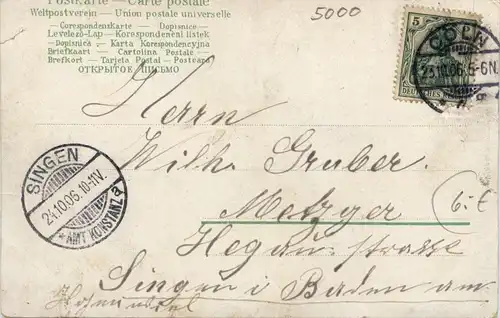 Postkarte — Carte postale
Weltpostverein — Union postale universelle
Correspondenzkarte — Dopisnice
Levelező-Lap — Korespondeneni listek
Dopisnica — Karta Korespondencyjna
Briefkaart — Cartolina Postale
Brefkort — Tarjeta Postal — Postcard
ОТКРЫТОЕ ПИСЬМО
5000
5
DEUTSCHES
CÖLN
23.10.06.5-6N.
Herrn
Wilh. Gruber
Metzger
Hegau-strasse
Singen i Baden am
Hohentwiel
SINGEN
24.10.06.10-11V.
AMT KONSTANZ a
6.-€